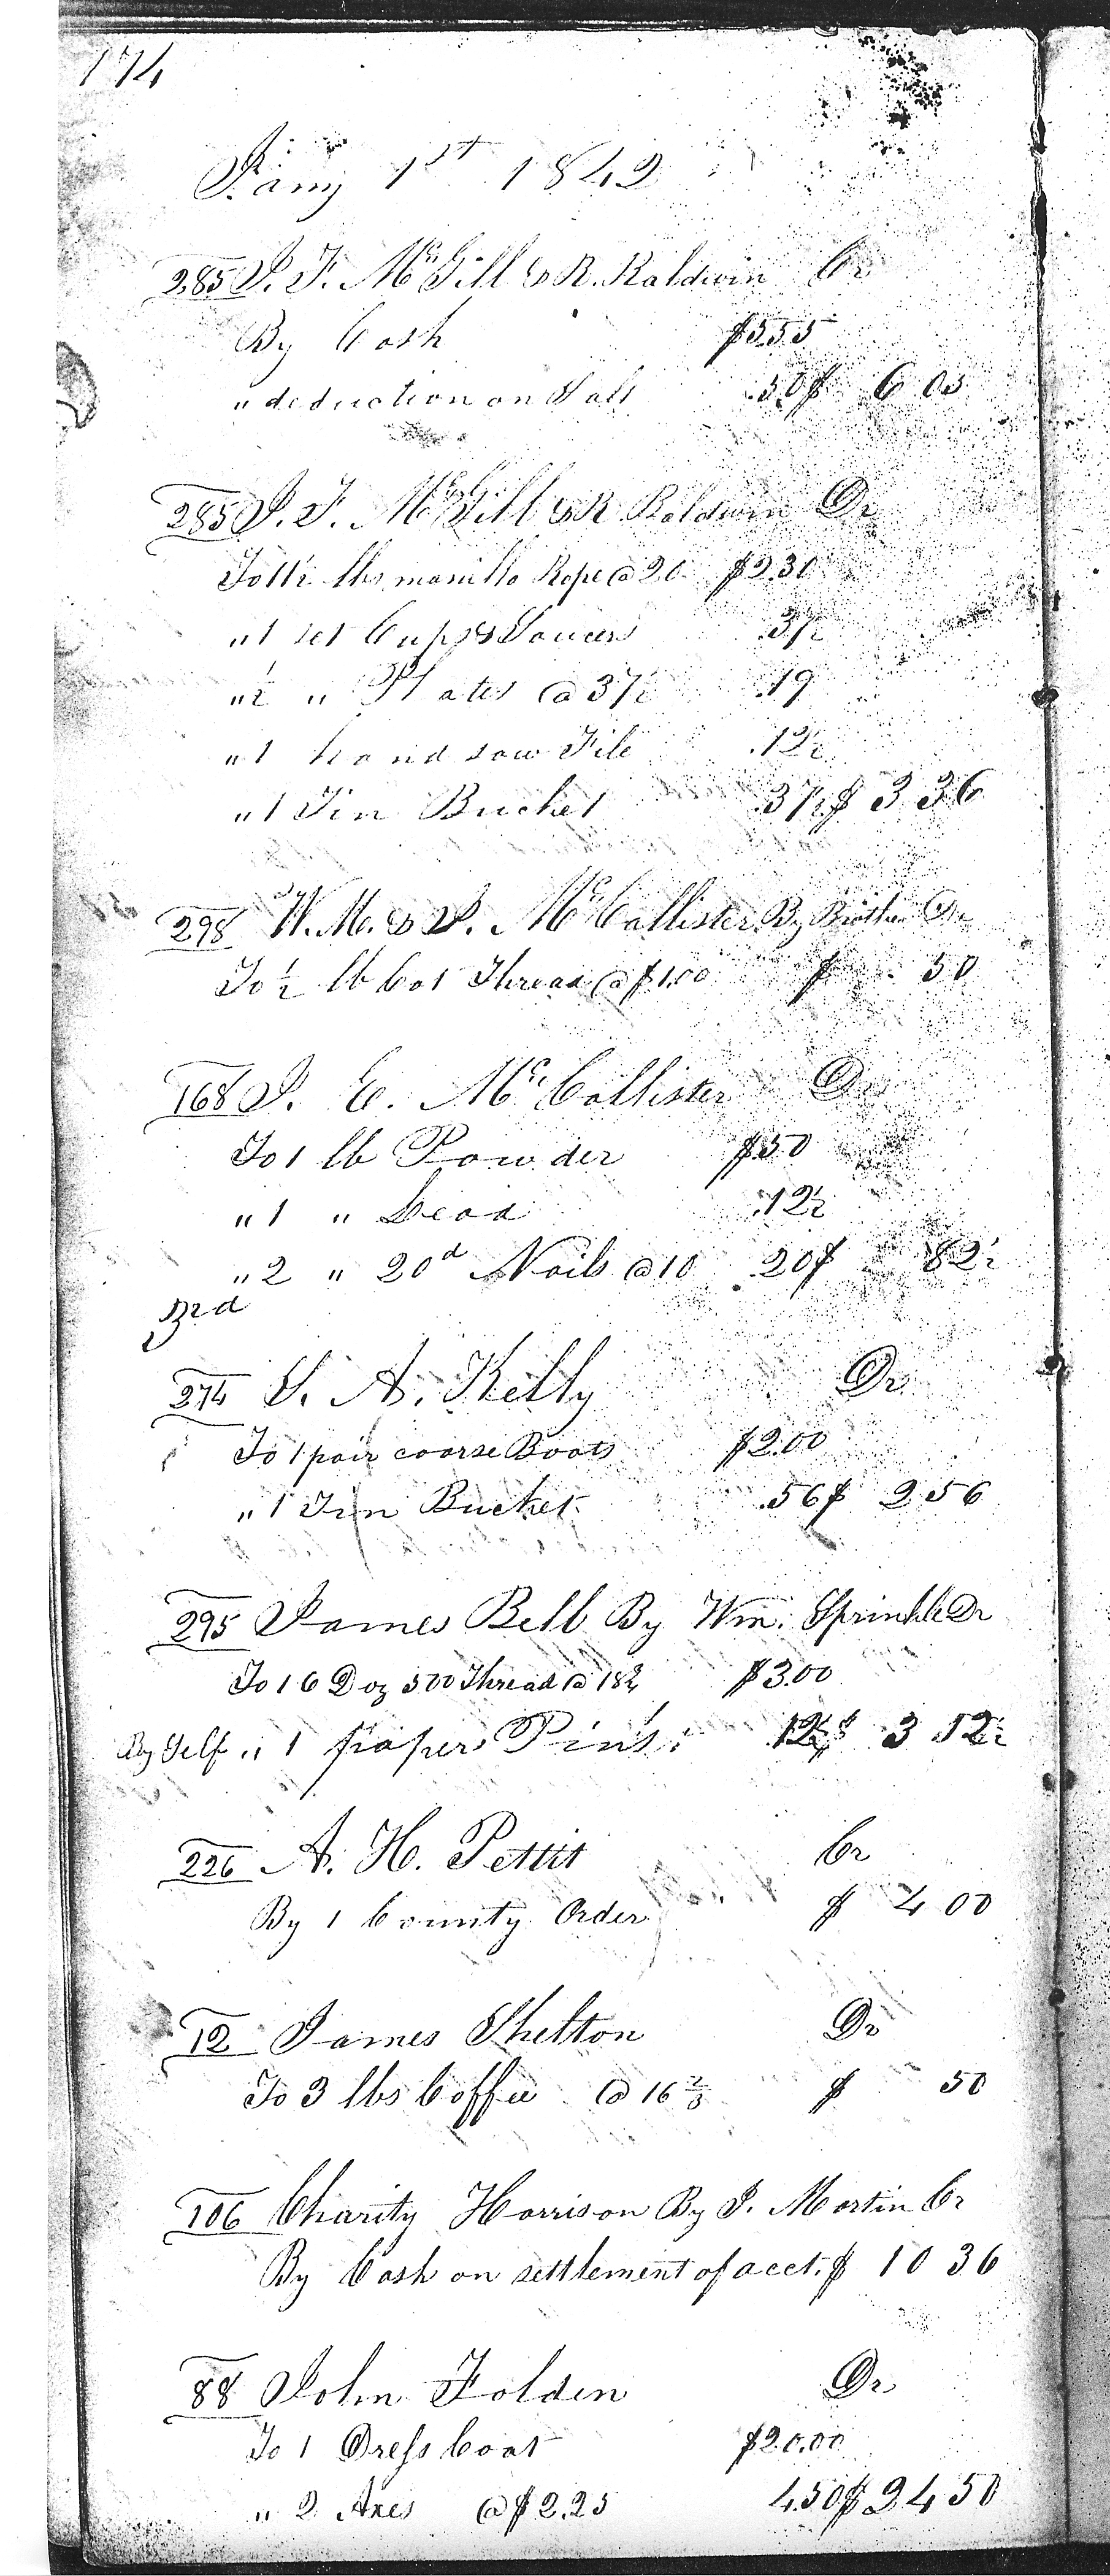 174
Jany 1st 1842
285 J. F. McGill & R. Baldwin Cr
By Cash $5.55
" deduction on Salt .50 $ 6 05
285 J. F. McGill & R Baldwin Dr
To 11½ lbs manilla Rope @ 20 $2.30
" 1 set Cupps & Saucers .37½
" ½ " Plates @ 37½ .19
" 1 hand saw File .12½
" 1 Tin Bucket .37½ $ 3 36
298 W. M. & J. McCallister By Brother Dr
To ½ lb Cot Thread @ $1.00 $ 50
168 J. C. McCallister Dr
To 1 lb Powder $.50
" 1 " Lead .12½
" 2 " 20d Nails @ 10 .20 $ 82½
3rd
274 S. A. Kelly Dr
To 1 pair coarse Boots $2.00
" 1 Tin Bucket .56 $ 2 56
295 James Bell By Wm. Sprinkle Dr
To 16 Doz 500 Thread @ 18¾ $3.00
By Self " 1 paper Pins .12½ $ 3 12½
226 A. H. Pettit Cr
By 1 County Order $ 4 00
12 James Shelton Dr
To 3 lbs Coffee @ 16⅔ $ 50
106 Charity Harrison By J. Martin Cr
By Cash on settlement of acct. $ 10 36
88 John Folden Dr
To 1 Dress Coat $20.00
" 2 Axes @ $2.25 4.50 $ 24 50